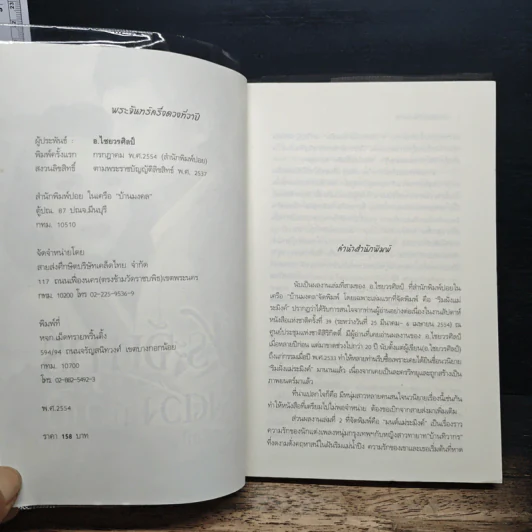 พระจันทร์ครึ่งดวงที่วาปี
ผู้ประพันธ์ : อ.ไชยวรศิลป์
พิมพ์ครั้งแรก กรกฎาคม พ.ศ.2554 (สำนักพิมพ์ปอย)
สงวนลิขสิทธิ์ ตามพระราชบัญญัติลิขสิทธิ์ พ.ศ. 2537
สำนักพิมพ์ปอย ในเครือ "บ้านมงคล"
ตู้ปณ. 87 ปณจ.มีนบุรี
กทม. 10510
จัดจำหน่ายโดย
สายส่งศึกษิตบริษัทเคล็ดไทย จำกัด
117 ถนนเฟื่องนคร(ตรงข้ามวัดราชบพิธ)เขตพระนคร
กทม. 10200 โทร 02-225-9536-9
พิมพ์ที่
หจก.เม็ดทรายพริ้นติ้ง
594/94 ถนนจรัญสนิทวงศ์ เขตบางกอกน้อย
กทม. 10700
โทร 02-882-5492-3
พ.ศ.2554
ราคา 158 บาท
คำนำสำนักพิมพ์
นับเป็นผลงานเล่มที่สามของ อ.ไชยวรศิลป์ ที่สำนักพิมพ์ปอยใน
เครือ "บ้านมงคล"จัดพิมพ์ โดยเฉพาะเล่มแรกที่จัดพิมพ์ คือ "ริมฝั่งแม่
ระมิงค์" ปรากฏว่าได้รับการสนใจจากท่านผู้อ่านอย่างต่อเนื่องในงานสัปดาห์
หนังสือแห่งชาติครั้งที่ 39 (ระหว่างวันที่ 25 มีนาคม- 6 เมษายน 2554) ณ
ศูนย์ประชุมแห่งชาติสิริกิตติ์ มีผู้อ่านที่เคยอ่านผลงานของ อ.ไชยวรศิลป์
เมื่อหลายปีก่อน แต่มาขาดช่วงไปกว่า 20 ปี นับตั้งแต่ผู้เขียน(อ.ไชยวรศิลป์)
ถึงแก่กรรมเมื่อปี พ.ศ.2533 ทำให้หลายท่านรีบซื้อเพราะเคยได้ยินชื่อนวนิยาย
"ริมฝั่งแม่ระมิงค์" มานานแล้ว เนื่องจากเคยเป็นละครวิทยุและถูกสร้างเป็น
ภาพยนตร์มาแล้ว
ที่น่าแปลกใจก็คือ มีหนุ่มสาวหลายคนสนใจนวนิยายเรื่องนี้เช่นกัน
ทำให้หนังสือที่เตรียมไปไม่พอจำหน่าย ต้องขอเบิกจากสายส่งมาเพิ่มเติม
ส่วนผลงานเล่มที่ 2 ที่จัดพิมพ์คือ "มนต์แม่ระมิงค์" เป็นเรื่องราว
ความรักของนักแต่งเพลงหนุ่มกรุงเทพฯกับหญิงสาวทายาท"บ้านทิวากร"
ที่งดงามดังดอกสารภีในฝันริมแม่น้ำปิง ความรักของเขาและเธอเริ่มต้นที่หาด